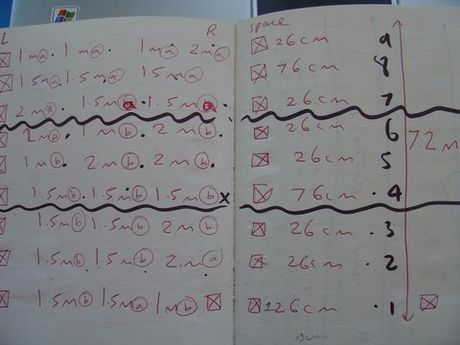 L R
1mⓐ. 1mⓐ 1mⓐ 2mⓐ
1.5mⓐ. 1.5mⓐ 1.5mⓐ
2mⓐ. 1.5mⓑ. 1.5mⓐ.
2mⓑ. 1mⓑ 2mⓑ
1mⓑ. 2mⓑ 2mⓑ
1.5mⓑ. 1.5mⓑ 1.5mⓑ x
1.5mⓑ 1.5mⓑ 2mⓑ
1.5mⓑ. 1.5mⓑ. 2.mⓐ
1.5mⓑ 1.5mⓐ 1mⓑ
space
26cm 9
76cm 8
26cm 7
26cm 6
7.2m
26cm 5
76cm . 4
26cm . 3
26cm . 2
126cm . 1